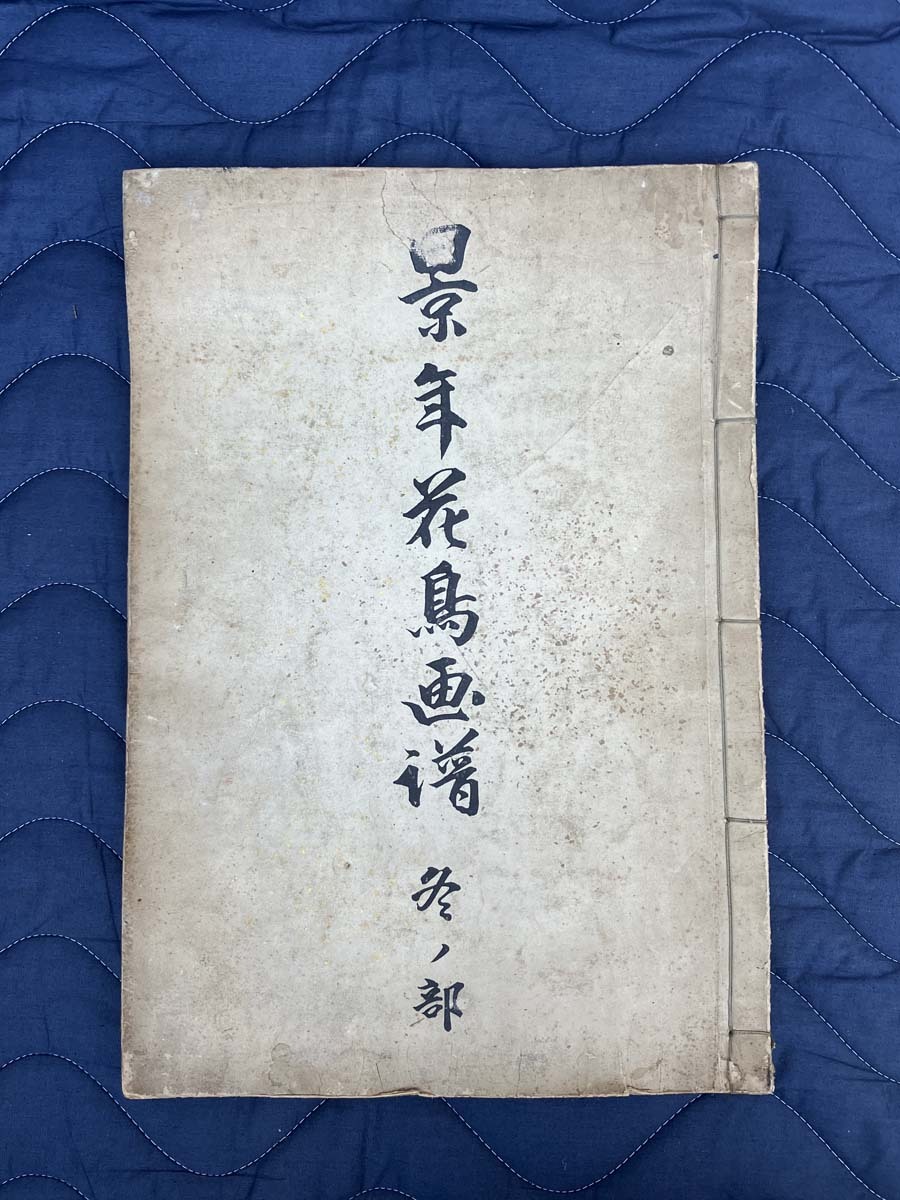 景年花鳥画譜 冬ノ部